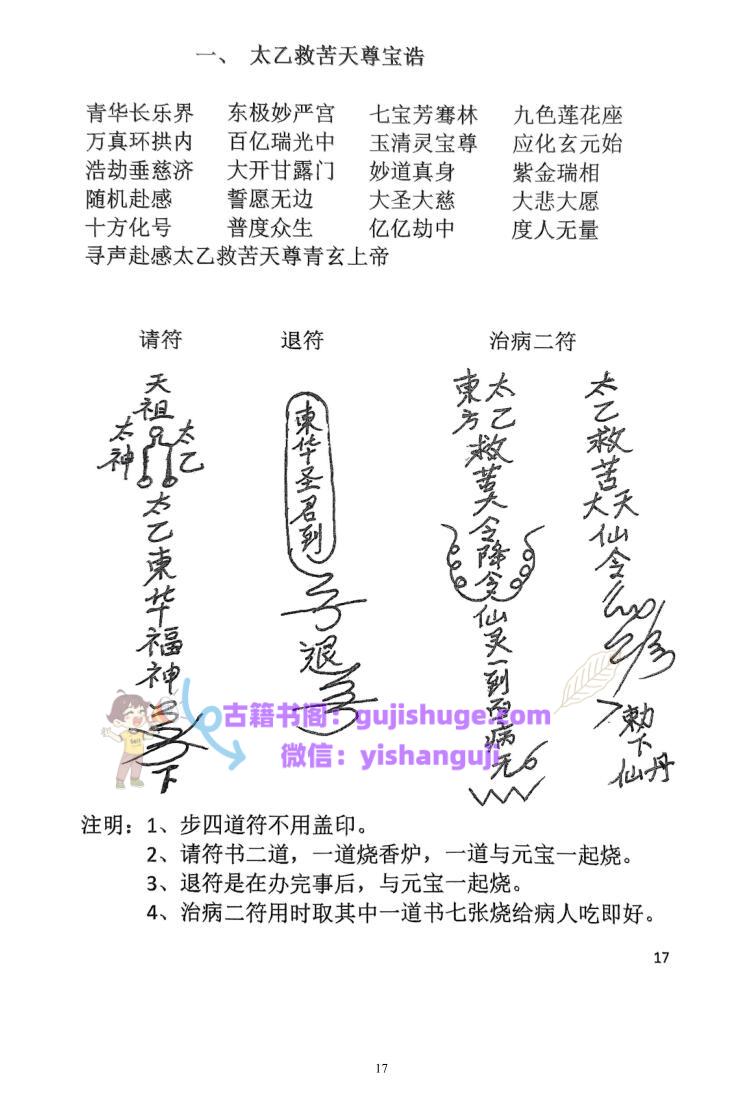 一、 太乙救苦天尊宝诰
青华长乐界 东极妙严宫 七宝芳骞林 九色莲花座
万真环拱内 百亿瑞光中 玉清灵宝尊 应化玄元始
浩劫垂慈济 大开甘露门 妙道真身 紫金瑞相
随机赴感 誓愿无边 大圣大慈 大悲大愿
十方化号 普度众生 亿亿劫中 度人无量
寻声赴感太乙救苦天尊青玄上帝
请符 退符 治病二符
天祖
太神
太乙
太乙東华福神
下
東华圣君到
退
太乙救苦天令降贪仙灵一到百病无
東方
太乙救苦天仙令
大
勅下仙丹
古籍书阁：gujishuge.com
微信：yishanguji
注明：1、步四道符不用盖印。
2、请符书二道，一道烧香炉，一道与元宝一起烧。
3、退符是在办完事后，与元宝一起烧。
4、治病二符用时取其中一道书七张烧给病人吃即好。
17
17